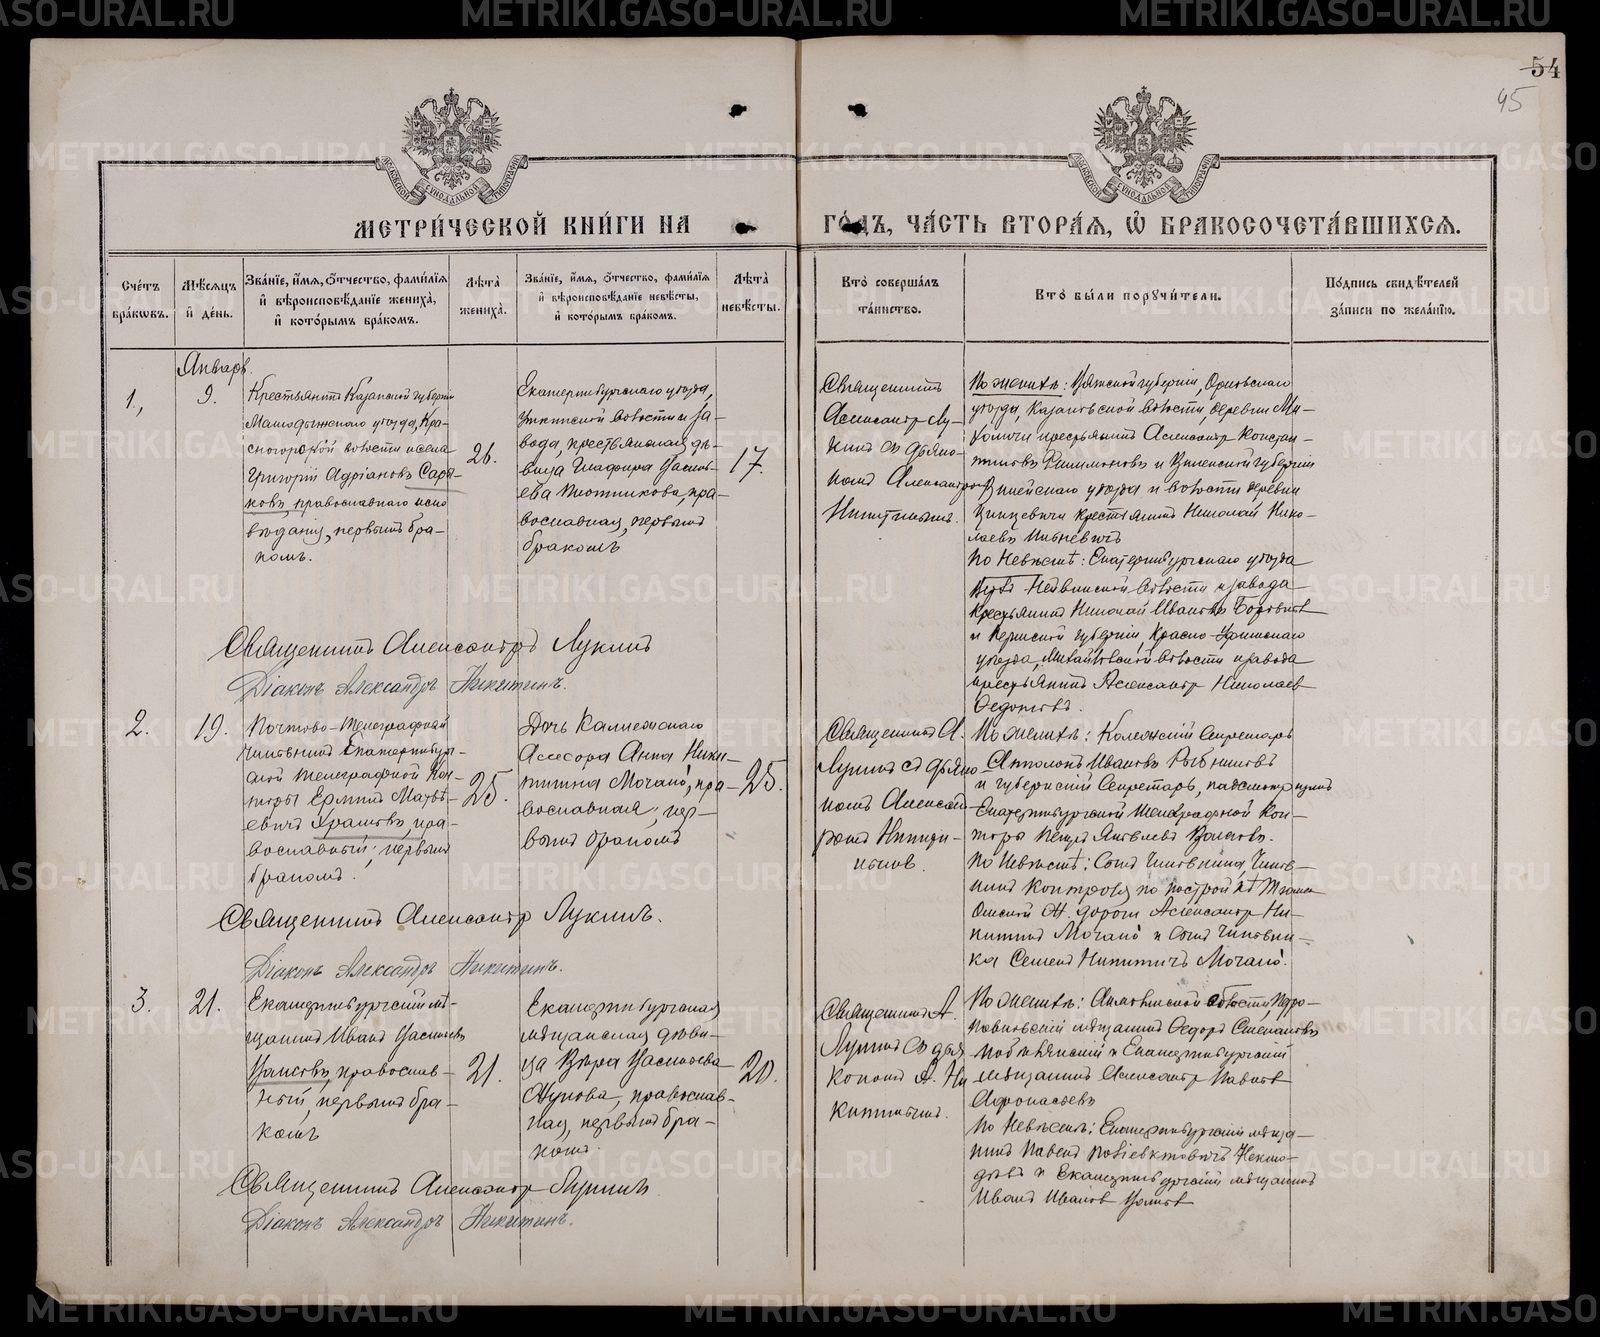 54
45
МЕТРИ́ЧЕСКОЙ КНИ́ГИ НА ГО́ДЪ, ЧА́СТЬ ВТОРА́Я, Ѡ҆ БРАКОСОЧЕТА́ВШИХСЯ.
Сче́тъ бра́ковъ.
Мѣ́сяцъ и҆ де́нь.
Зва́нїе, и҆́мя, ѻ҆́тчество, фами́лїя
и҆ вѣроисповѣ́данїе жениха̀,
и҆ кото́рымъ бра́комъ.
Лѣ́та жениха̀.
Зва́нїе, и҆́мя, ѻ҆́тчество, фами́лїя
и҆ вѣроисповѣ́данїе невѣ́сты,
и҆ кото́рымъ бра́комъ.
Лѣ́та невѣ́сты.
Кто̀ соверша́лъ
та́инство.
Кто̀ бы́ли порꙋчи́тели.
По́дпись свидѣ́телей
за́писи по жела́нїю.
Январь
1,
9.
Крестьянинъ Казанской губерніи
Мамадышскаго уѣзда, Кра-
сногорской волости и села
Григорій Адріановъ Сары-
ковъ, православнаго испо
вѣданія, первымъ бра-
комъ.
26.
Екатеринбургскаго уѣзда,
волости и за-
вода, крестьянская дѣ-
вица Глафира Василь-
ева Плотникова, пра-
вославная, первымъ
бракомъ
17.
Священникъ
Александръ Лу-
кинъ съ діако-
номъ Александромъ
Никитинымъ.
По женихѣ: Вятской губерніи, Орловскаго
уѣзда, Казаковской волости, деревни
крестьянинъ Александръ Констан-
тиновъ и Виленской губерніи
уѣзда и волости деревни
крестьянинъ Николай Нико-
лаевъ
По Невѣстѣ: Екатеринбургскаго уѣзда
Нейвинской волости и завода
Крестьянинъ Николай Ивановъ
и Пермской губерніи, Красно-Уфимскаго
уѣзда, Михайловской волости и завода
крестьянинъ Александръ Николаев
Федотовъ.
Священникъ Александръ Лукинъ
Діаконъ Александръ Никитинъ.
2.
19.
Почтово-Телеграфный
чиновникъ Екатеринбург-
ской телеграфной Кон-
торы Ермилъ Матвѣ-
евичъ Храмовъ, пра-
вославный; первымъ
бракомъ.
25.
Дочь Коллежскаго
Асесора Анна Ники-
тична Мочало, пра-
вославная, пер-
вымъ бракомъ
25.
Священникъ А.
Лукинъ съ діако-
номъ Алексан-
дромъ Никити-
нымъ.
По женихѣ: Колежскій Секретарь
Аполонъ Ивановъ Рыбниковъ
и губернскій Секретарь, надсмотрщикъ
Екатеринбургской Телеграфной Кон-
торы Петръ Яковлевъ
По Невѣстѣ: Сынъ Чиновника, Чинов-
никъ Контроля по постройкѣ Тюмен
Омской Ж. дороги Александръ Ни-
китинъ Мочало и Сынъ Чиновни-
ка Семенъ Никитичъ Мочало.
Священникъ Александръ Лукинъ.
Діаконъ Александръ Никитинъ.
3.
21.
Екатеринбургскій мѣ-
щанинъ Иванъ Васильевъ
православ-
ный, первымъ бра-
комъ
21.
Екатеринбургская
мѣщанская дѣви-
ца Вѣра Васильева
Жукова, православ-
ная, первымъ бра-
комъ.
20.
Священникъ А.
Лукинъ съ діа
кономъ А. Ни
китинымъ.
По женихѣ: волости,
мѣщанинъ Федоръ Степановъ
и Екатеринбургскій
мѣщанинъ Александръ Павловъ
Афонасьевъ
По Невѣстѣ: Екатеринбургскій мѣща-
нинъ Павелъ
и Екатеринбургскій мѣщанинъ
Иванъ Ивановъ
Священникъ Александръ Лукинъ
Діаконъ Александръ Никитинъ.
METRIKI.GASO-URAL.RU